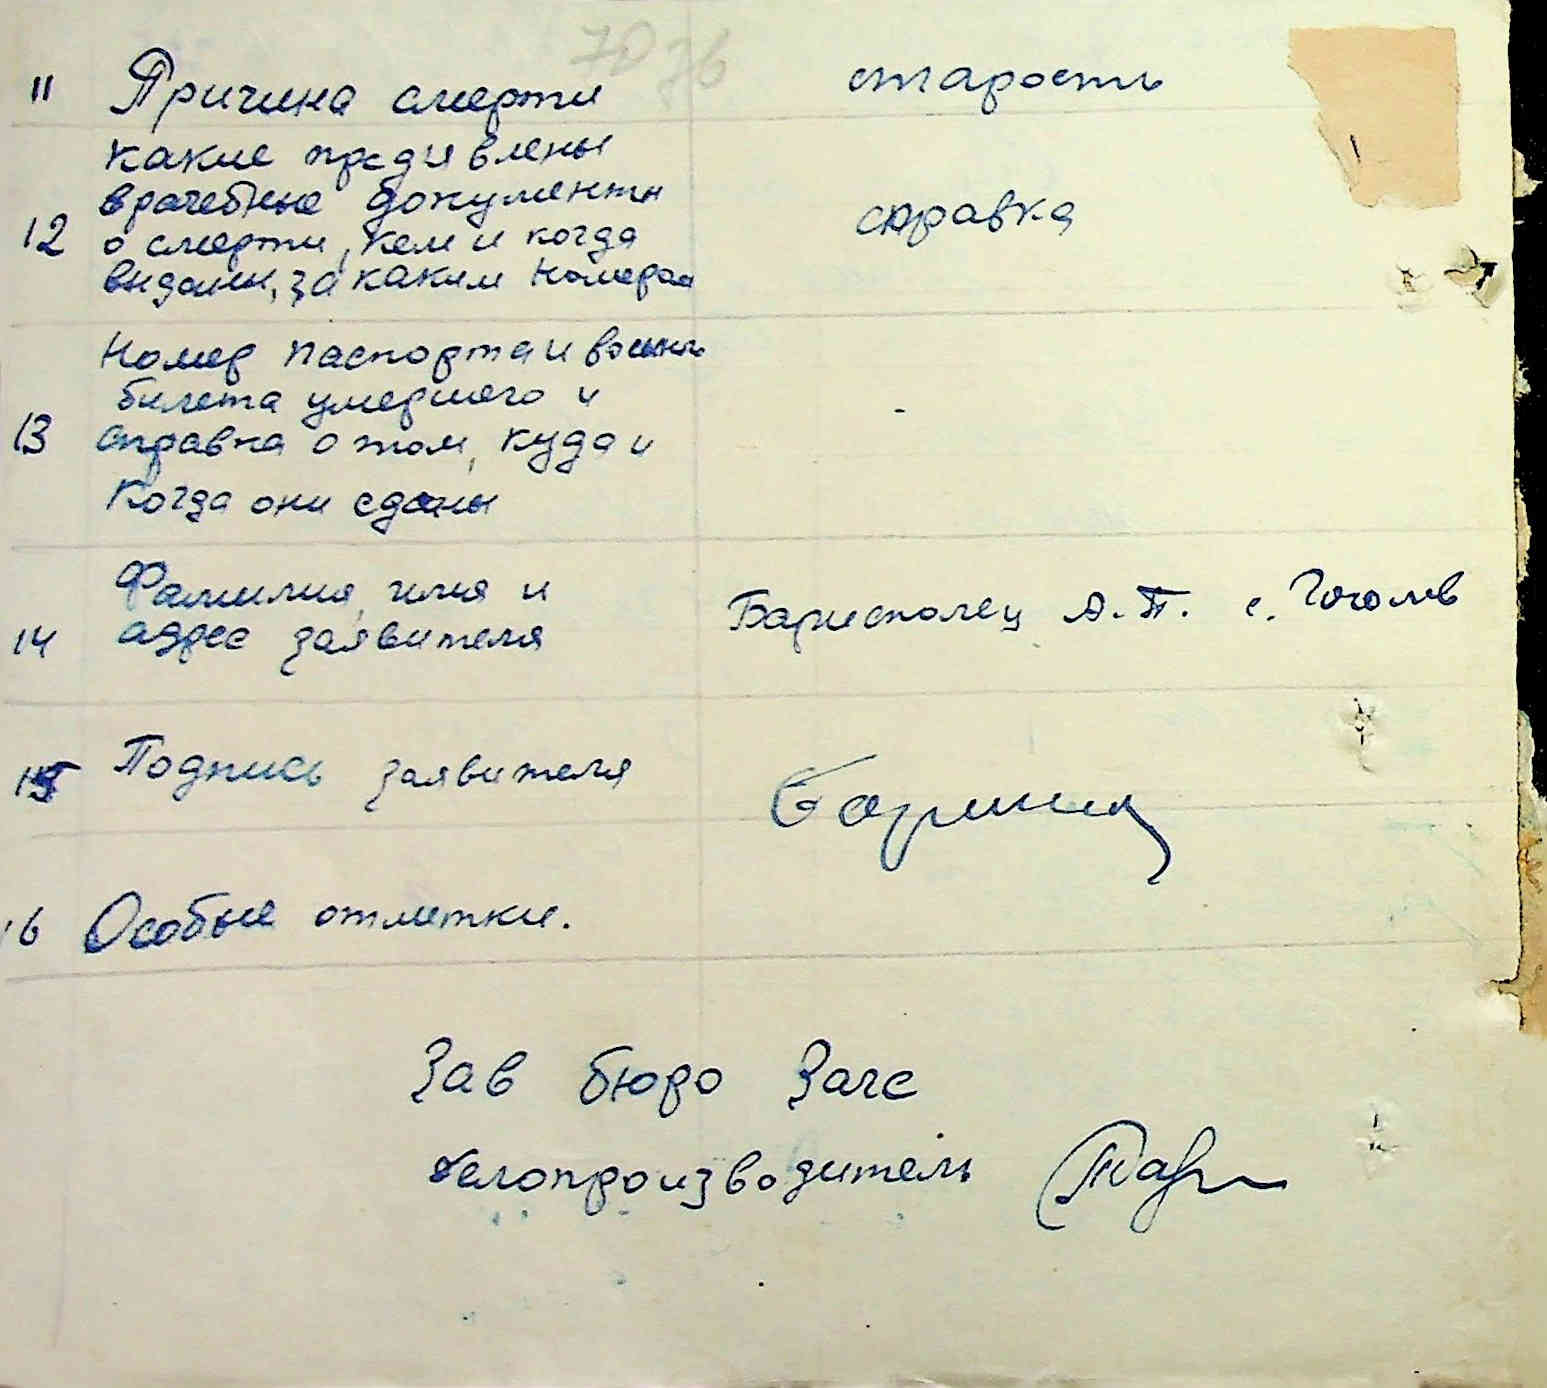 70 76
11 Причина смерти старость
какие предъявлены
врачебные документы
12 о смерти, кем и когда справка
выданы, за каким номером
Номер паспорта и военн
билета умершего и
13 справка о том, куда и -
когда они сданы
Фамилия, имя и
14 адрес заявителя Барисполец А.П. с. Гоголев
15 Подпись заявителя
16 Особые отметки.
Зав бюро Загс
делопроизводитель